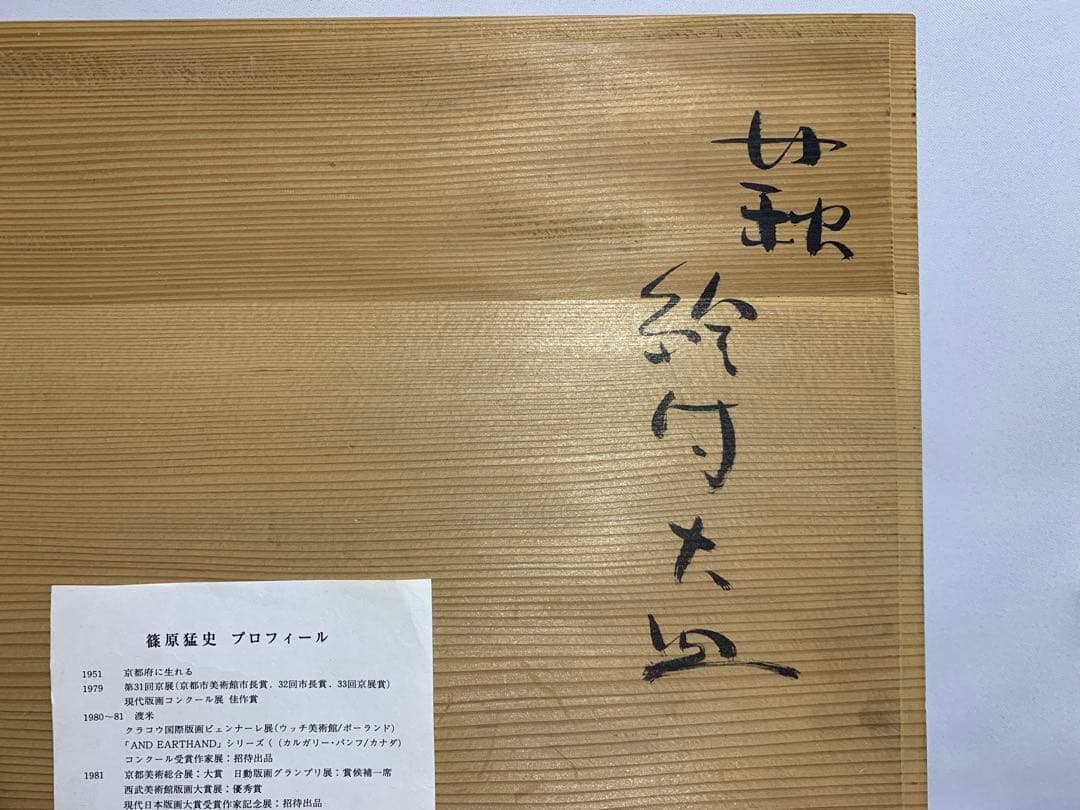 萩
絵付大皿
篠原猛史 プロフィール
1951 京都府に生れる
1979 第31回京展(京都市美術館市長賞．32回市長賞．33回京展賞)
現代版画コンクール展 佳作賞
1980～81 渡米
クラコウ国際版画ビェンナーレ展(ウッチ美術館/ポーランド)
「AND EARTHAND」シリーズ ( (カルガリー・バンフ/カナダ)
コンクール受賞作家展：招待出品
1981 京都美術総合展：大賞 日動版画グランプリ展：賞候補一席
西武美術館版画大賞展：優秀賞
現代日本版画大賞受賞作家記念展：招待出品